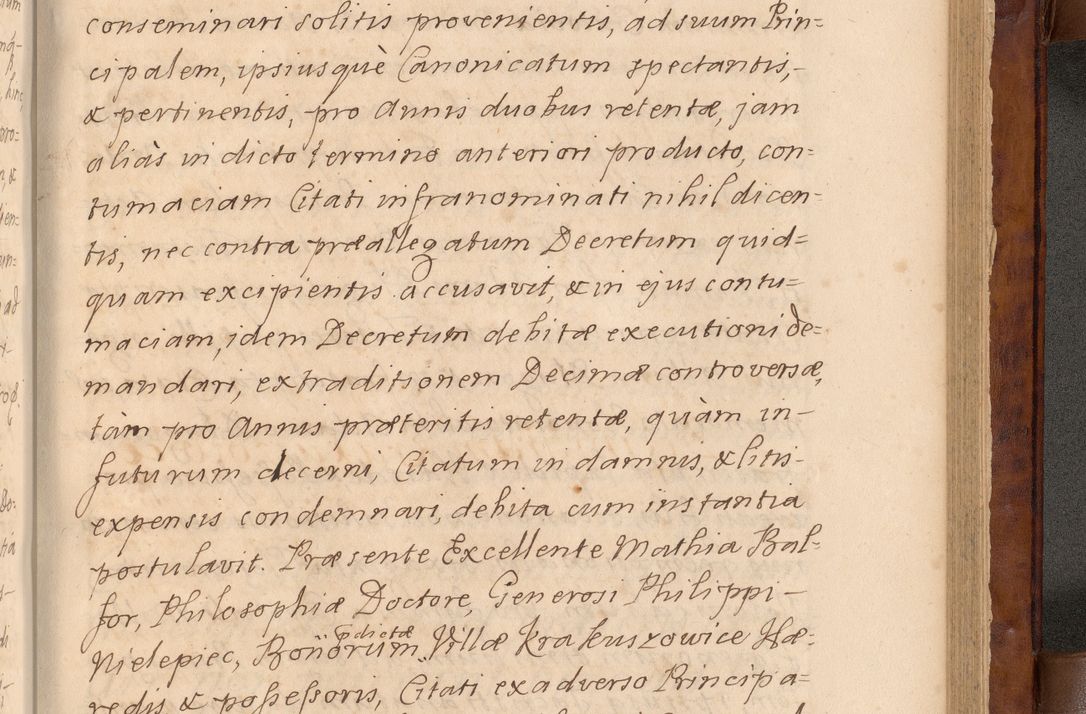 conseminari solitis provenientis, ad suum Prin=
cipalem, ipsiusquè Canonicatum spectantis,-
& pertinentis, pro Annis duobus retentæ, jam
aliàs in dicto termino anteriori producto, con=
tumaciam Citati infranominati nihil dicen-
tis, nec contra præallegatum Decretum quid=
quam excipientis accusavit, & in ejus contu=
maciam, idem Decretum debitæ executioni de=
mandari, extraditionem Decimæ controversæ,
tàm pro Annis præteritis retentæ, quàm in-
futurum decerni, Citatum in damnis, & litis-
expensis condemnari, debita cum instantia
postulavit. Præsente Excellente Mathia Bal=
for, Philosophiæ Doctore, Generosi Philippi-
Nielepiec, Bonorum pdictæ Villæ Krakuszowice Hæ=
redis & possessoris, Citati ex adverso Principa=